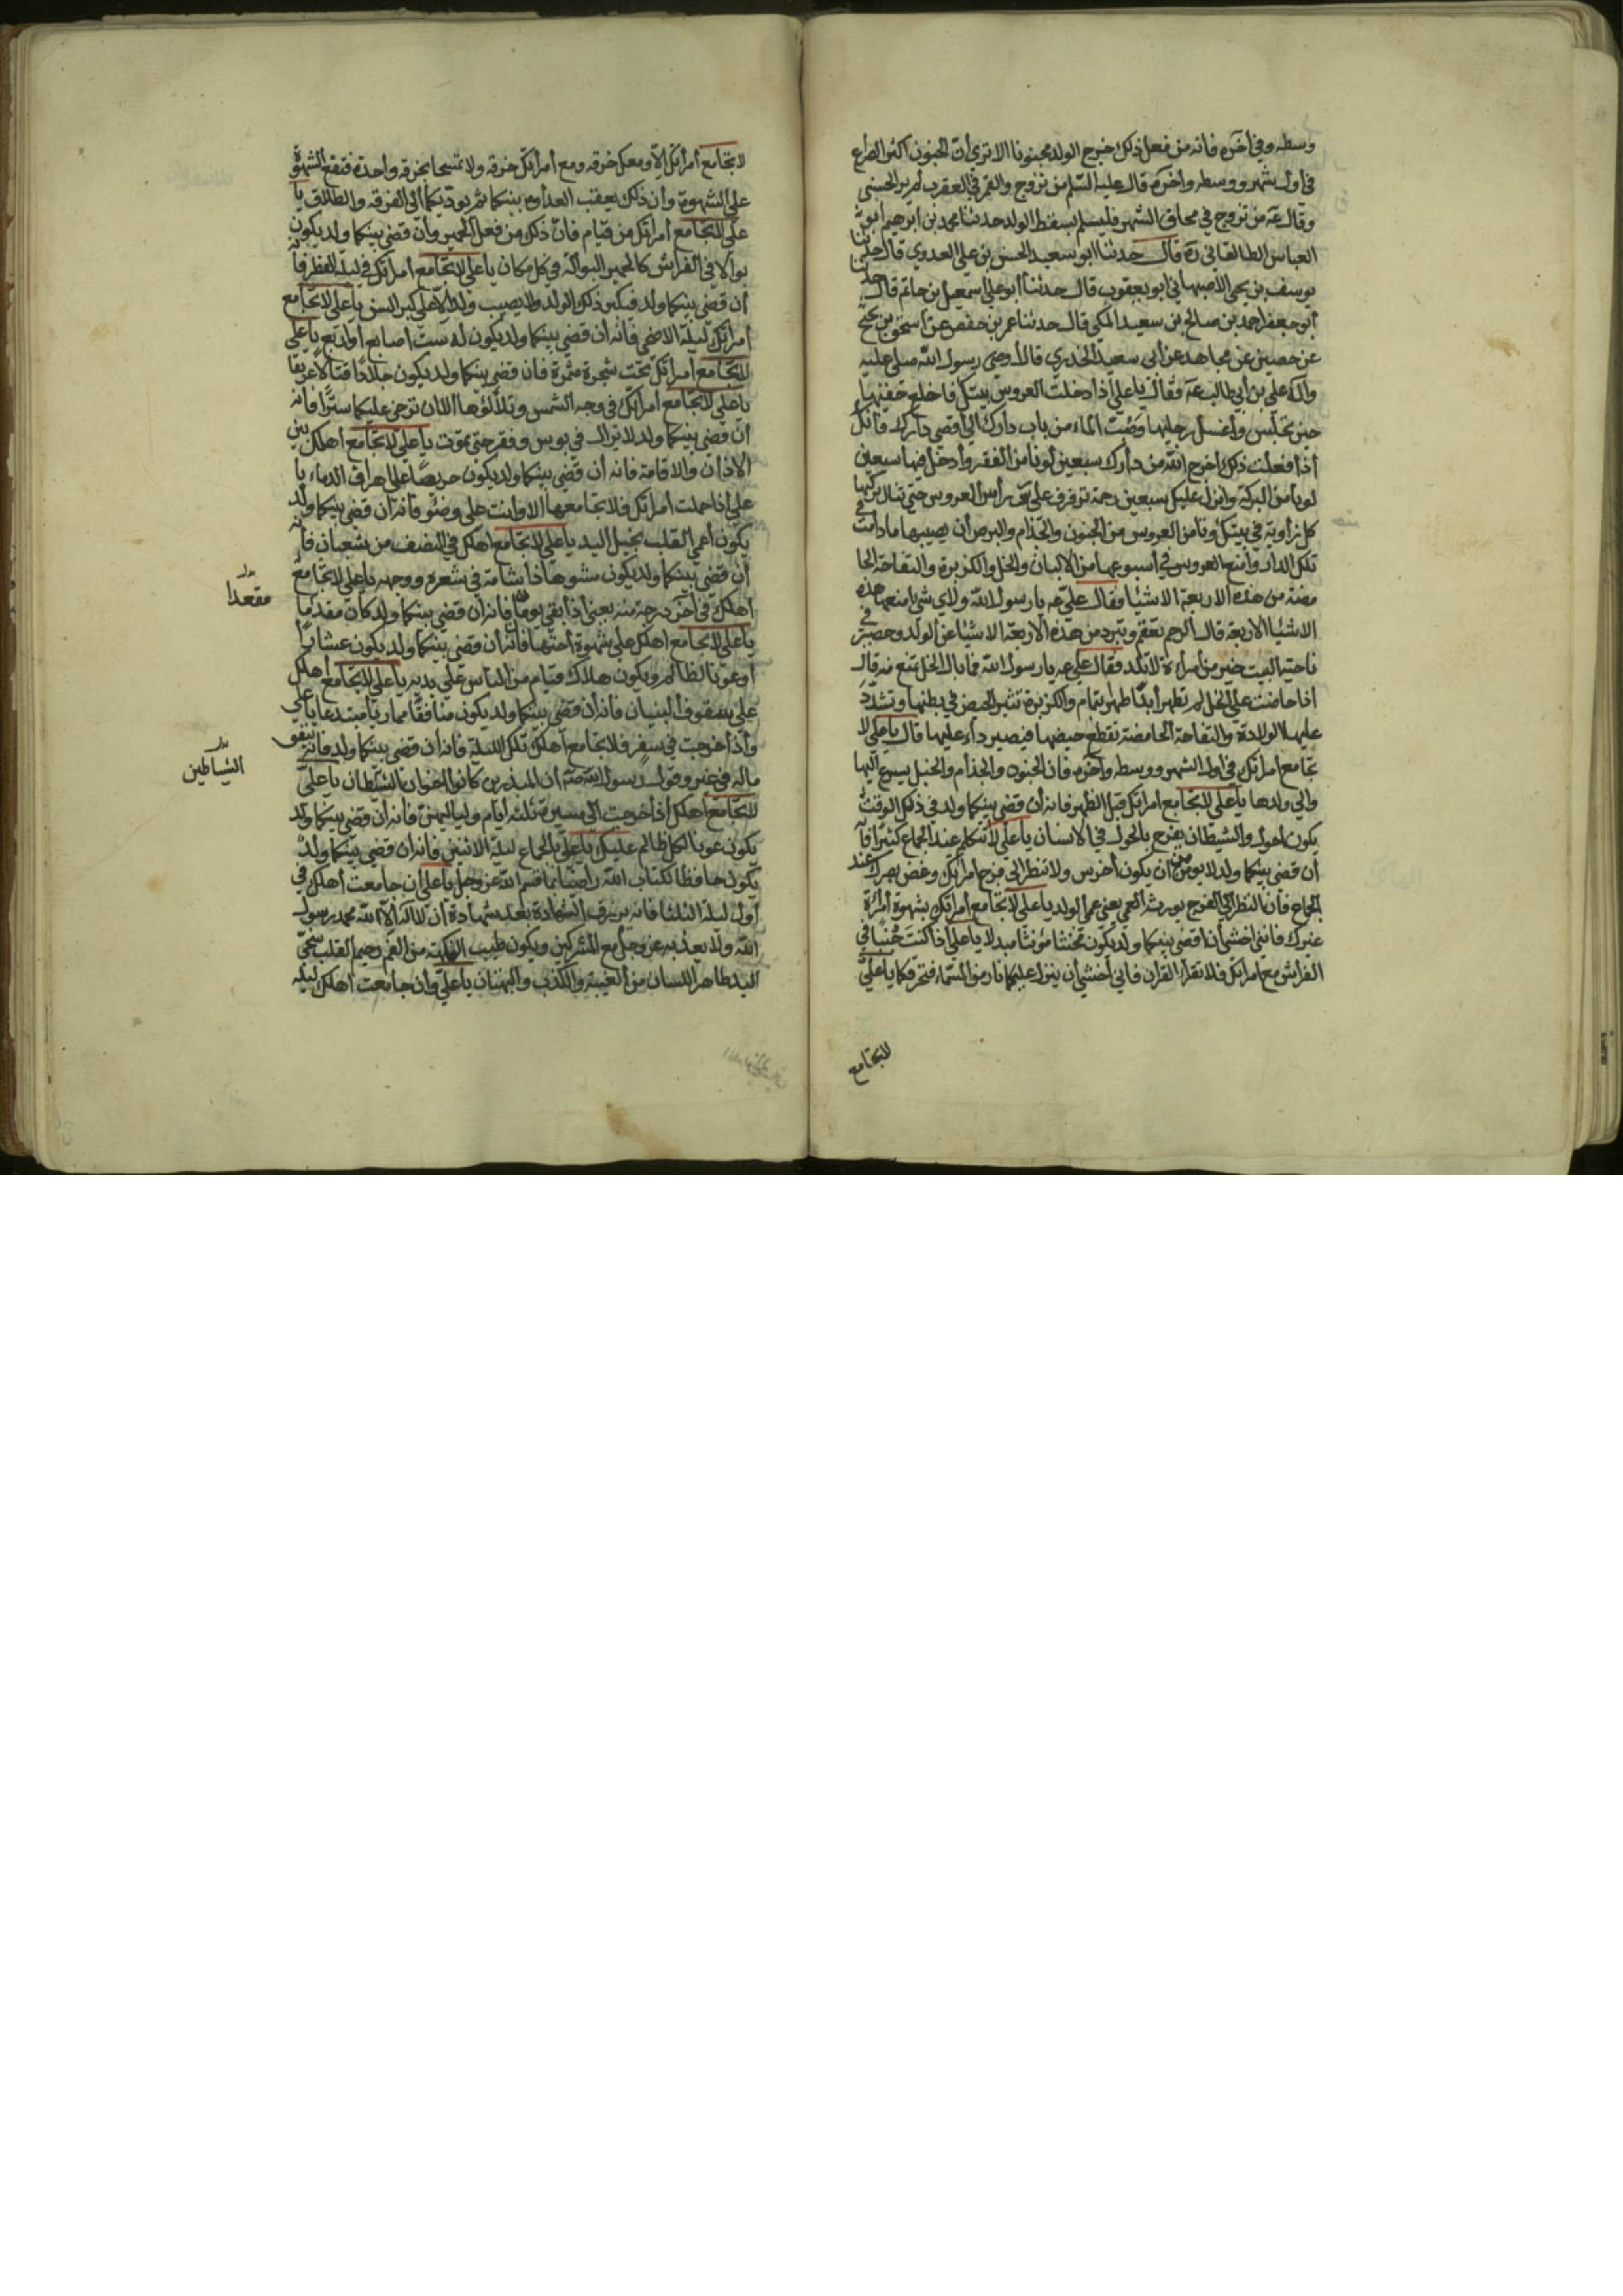 وسطه وفي آخره فانه من فعل ذلك خرج الولد مجنونا الا ترى ان المجنون اكثر الصرع
في اول شهر ووسطه وآخره قال عليه السلم من تزوج والقمر في العقرب لم ير الحسنى
وقال عه من تزوج في محاق الشهر فليسلم لسقط الولد حدثنا محمد بن ابرهيم ابو
العباس الطالقاني ره قال حدثنا ابو سعيد الحسن بن علي العدوي قال حدثنا
يوسف بن يحيى الاصبهاني ابو يعقوب قال حدثنا ابو علي اسمعيل بن حاتم قال حدثنا
ابو جعفر احمد بن صالح بن سعيد المكي قال حدثنا عمر بن حفص عن اسحق بن نجيح
عن حصين عن مجاهد عن ابي سعيد الخدري قال أوصى رسول الله صلى عليه
وآله علي بن ابي طالب عه فقال يا علي اذا دخلت العروس بيتك فاخلع خفيها
حين تجلس واغسل رجليها وصب الماء من باب دارك الى اقصى دارك فانك
اذا فعلت ذلك اخرج الله من دارك سبعين لونا من الفقر وأدخل فيها سبعين
لونا من البركة وانزل عليك سبعين رحمة ترفرف على رأس العروس حتى تنال بركتها
كل زاوية في بيتك وتأمن العروس من الجنون والجذام والبرص أن يصيبها ما دامت في
تلك الدار وامنع العروس في أسبوعها من الالبان والخل والكزبرة والتفاحة الحا
مضة من هذه الاربعة الاشيا فقال علي عه يا رسول الله ولاي شي امنعها هذه
الاشيا الاربعة قال لان الرحم تعقم وتبرد من هذه الاربعة الاشيا عن الولد وحصير في
ناحية البيت خير من امرأة لا تلد فقال علي عه يا رسول الله فما بال الخل تمنع منه قال
اذا حاضت على الخل لم تطهر أبدا طهرا بتمام والكزبرة تثير الحيض في بطنها وتشدد
عليها الولادة والتفاحة الحامضة تقطع حيضها فيصير داء عليها قال يا علي لا
تجامع امراتك في اول الشهر ووسطه وآخره فان الجنون والجذام والخبل يسرع اليها
والى ولدها يا علي لا تجامع امراتك قبل الظهر فانه ان قضي بينكما ولد في ذلك الوقت
يكون احول والشيطان يفرح بالحول في الانسان يا علي لا تتكلم عند الجماع كثيرا فانه
أن قضي بينكما ولد لا يومن ان يكون أخرس ولا تنظر الى فرج امرأتك وغض بصرك عند
الجماع فان النظر الى الفرج يورث العمى يعني عمى الولد يا علي لا تجامع امراتك بشهوة امرأة
غيرك فانني اخشى ان قضي بينكما ولد يكون مخنثا مؤنثا مبدلا يا علي اذا كنت جُنبًا في
الفراش مع امراتك فلا تقرأ القران فاني أخشى أن ينزل عليكما نار من السماء فتحرقكما يا علي
لا تجامع
لا تجامع أمرأتك الا ومعك خرقه ومع أمراتك خرقه ولا تمسحا بخرقه واحدة فتقع الشهوة
على الشهوة وأن ذلك يعقب العداوة بينكما ثم يوديكما ألى الفرقه والطلاق يا
علي لا تجامع أمراتك من قيام فان ذلك من فعل الحمير وأن قضي بينكما ولد يكون
بوالا في الفراش كالحمير البوالة في كل مكان يا علي لا تجامع أمراتك في ليلة الفطر فانه
أن قضي بينكما ولد فيكبر ذلك الولد ولا يصيب ولدا الا على كبر السن يا علي لا تجامع
أمراتك ليلة الاضحى فانه أن قضي بينكما ولد يكون له ست أصابع أو اربع يا علي
لا تجامع أمراتك تحت شجرة مثمرة فان قضي بينكما ولد يكون جلادا قتالا عريفا
يا علي لا تجامع امراتك في وجه الشمس وتلألؤها الا ان ترخي عليكما سترا فانه
ان قضي بينكما ولد لا يزال في بوس وفقر حتى يموت يا علي لا تجامع اهلك بين
الاذان والاقامة فانه أن قضي بينكما ولد يكون حريصا على اهراق الدماء يا
علي اذا حملت امراتك فلا تجامعها الا وانت على وضو فانه ان قضي بينكما ولد
يكون أعمى القلب بخيل اليد يا علي لا تجامع اهلك في النصف من شعبان فانه
أن قضي بينكما ولد يكون مشوها ذا شامة في شعره ووجهه يا علي لا تجامع
أهلك في آخر درجة منه يعني اذا بقي يومان فانه أن قضي بينكما ولد كان مقدما
مقعدا
يا علي لا تجامع اهلك على شهوة أختها فانه أن قضي بينكما ولد يكون عشارا
أو عونا لظالم ويكون هلاك فيام من الناس على يديه يا علي لا تجامع أهلك
على سقوف البنيان فانه أن قضي بينكما ولد يكون منافقا مماريا مبتدعا يا علي
وأذا خرجت في سفر فلا تجامع اهلك تلك الليلة فانه ان قضي بينكما ولد فانه ينفق
ماله في غير وقول رسول الله صه ان المبذرين كانوا اخوان الشيطان يا علي
الشياطين
لا تجامع أهلك أذا خرجت الى مسيرة ثلثه أيام ولياليهن فانه أن قضي بينكما ولد
يكون عونا لكل ظالم عليك يا علي بالجماع ليلة الاثنين فانه ان قضي بينكما ولد
يكون حافظا لكتاب الله راضيا بما قسم الله عز وجل يا علي ان جامعت أهلك في
أول ليلة الثلثا فانه يرزق الشهادة بعد شهادة ان لا اله الا الله محمد رسول
الله ولا يعذبه عز وجل مع المشركين ويكون طيب النكهة من الفم رحيم القلب سخي
اليد طاهر اللسان من الغيبة والكذب والبهتان يا علي وأن جامعت أهلك ليلة